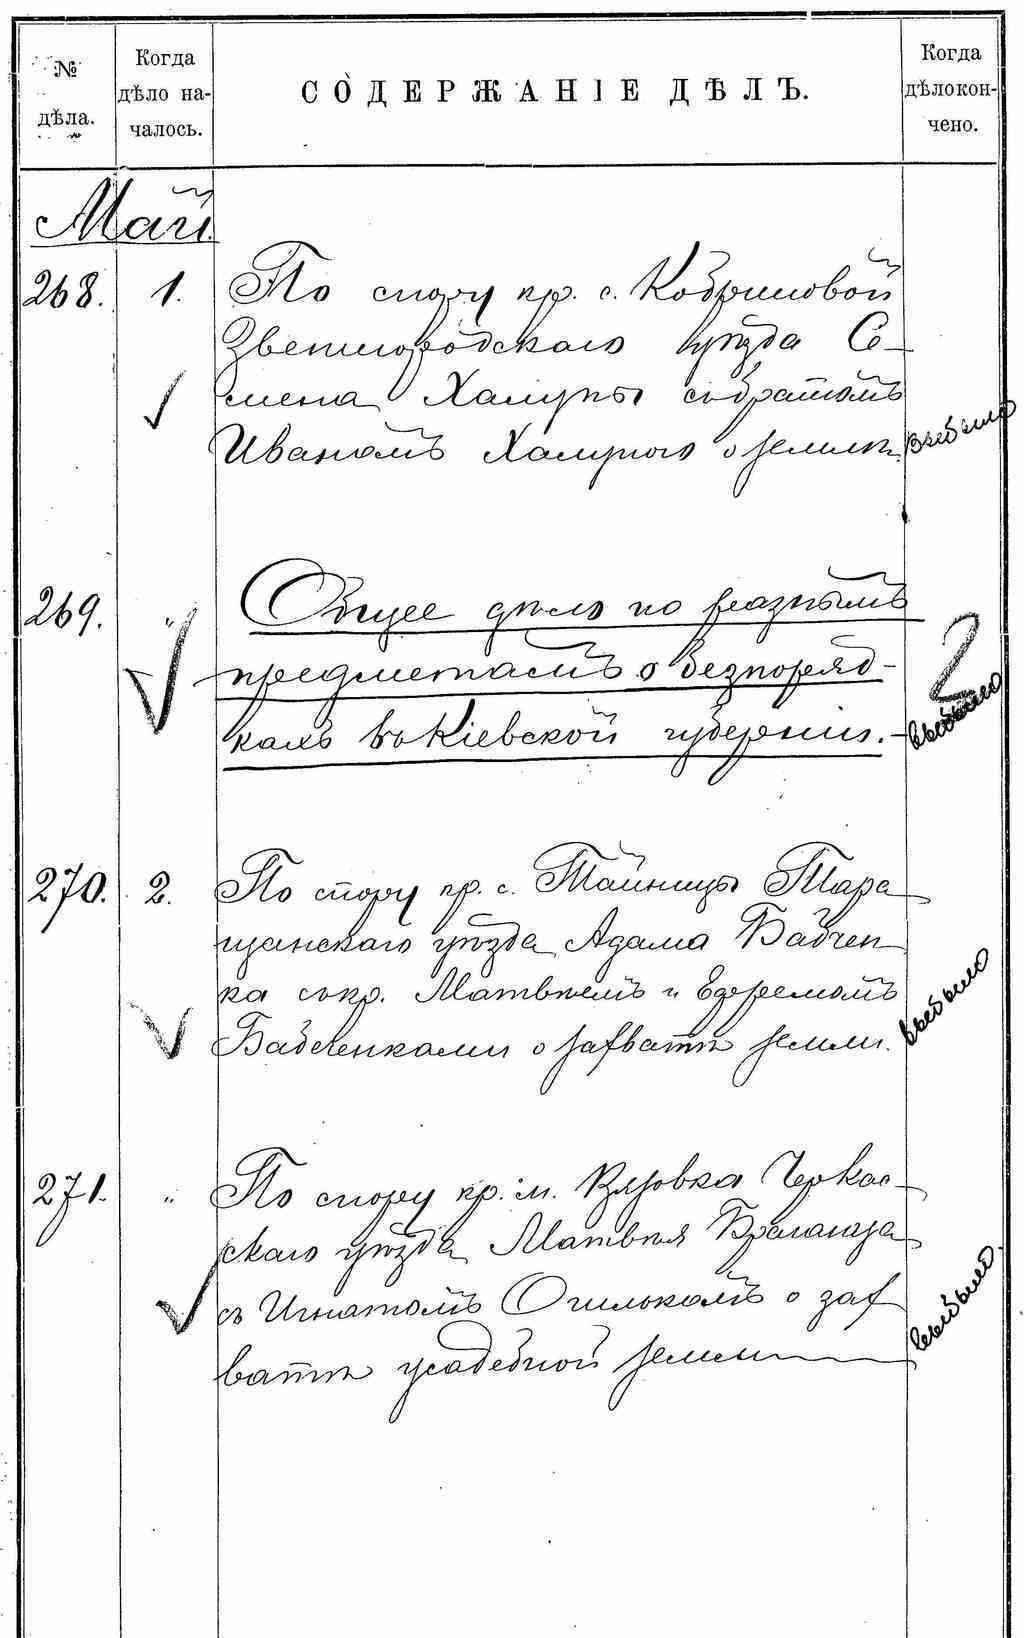 № дѣла.
Когда дѣло на-
чалось.
СОДЕРЖАНІЕ ДѢЛЪ.
Когда дѣло кон-
чено.
Май.
268. 1. По спору кр. с. Кобриновой
Звенигородскаго уѣзда Се-
мена Халупы съ братомъ
Иваномъ Халупою о землѣ. выбыло
269. " Общее дѣло по разнымъ
предметамъ о безпоряд-
кахъ въ Кіевской губерніи. - 2 выбыло
270. 2. По спору кр. с. Тайницы Тара
щанскаго уѣзда Адама Бабчен
ка съ кр. Матвѣемъ и Ефремомъ
Бабченками о захватѣ земли. выбыло
271. " По спору кр. м. Вязовка Черкас-
скаго уѣзда Матвѣя
съ Игнатомъ о зах
ватѣ усадебной земли выбыло